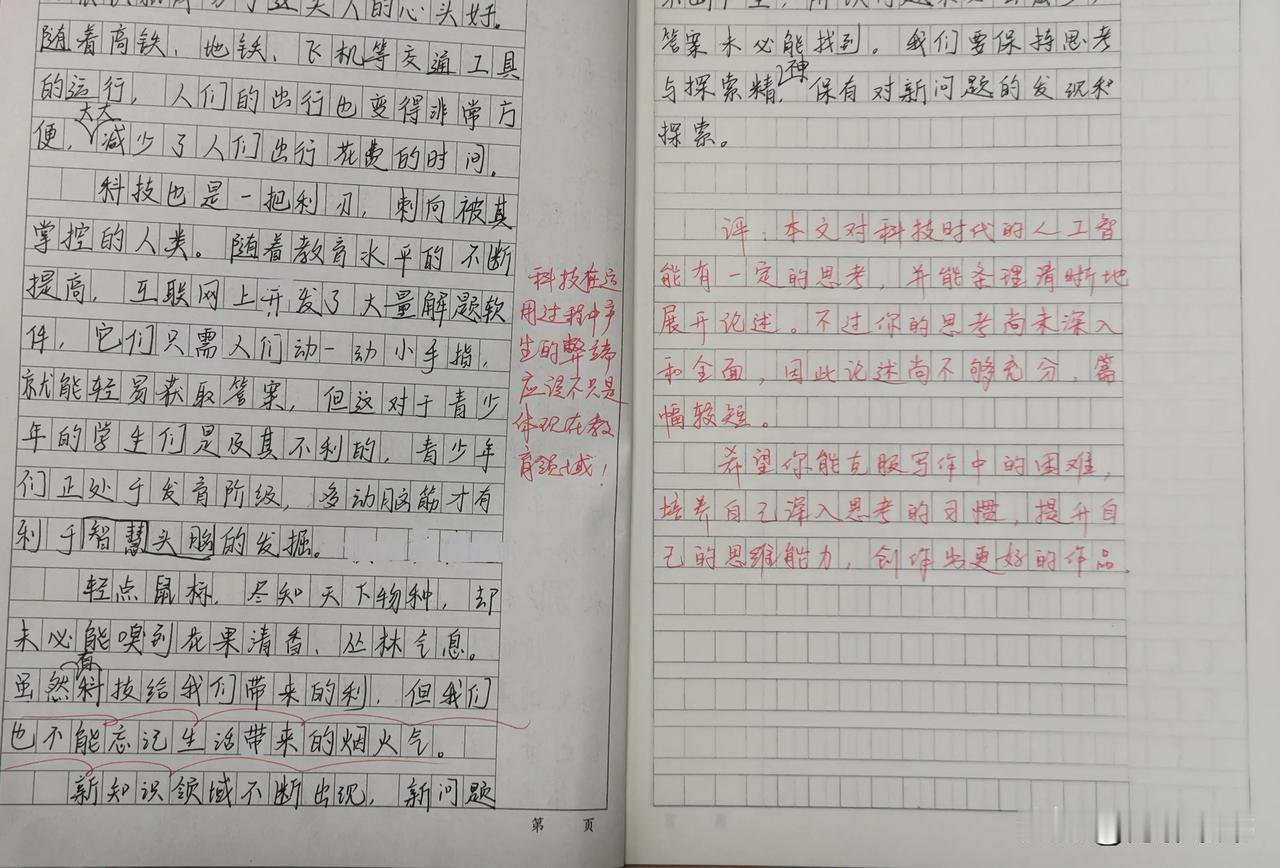 头人的心头好。
随着高铁、地铁、飞机等交通工具
的运行，人们的出行也变得非常方
大大
便，减少了人们出行花费的时间。
科技也是一把利刃，刺向被其
掌控的人类。随着教育水平的不断
提高，互联网上开发了大量解题软
件，它们只需人们动一动小手指，
就能轻易获取答案，但这对于青少
年的学生们是及其不利的，青少年
们正处于发育阶级，多动脑筋才有
利于智慧头脑的发掘。
轻点鼠标，尽知天下物种，却
未必能嗅到花果清香、丛林气息。
有
虽然科技给我们带来的利，但我们
也不能忘记生活带来的烟火气。
新知识领域不断出现，新问题
第 页
科技在运
用过程中产
生的弊端
应该不只是
体现在教
育领域！
答案未必能找到。我们要保持思考
神
与探索精，保有对新问题的发现和
探索。
评：本文对科技时代的人工智
能有一定的思考，并能条理清晰地
展开论述。不过你的思考尚未深入
和全面，因此论述尚不够充分，篇
幅较短。
希望你能克服写作中的困难，
培养自己深入思考的习惯，提升自
己的思维能力，创作出更好的作品。